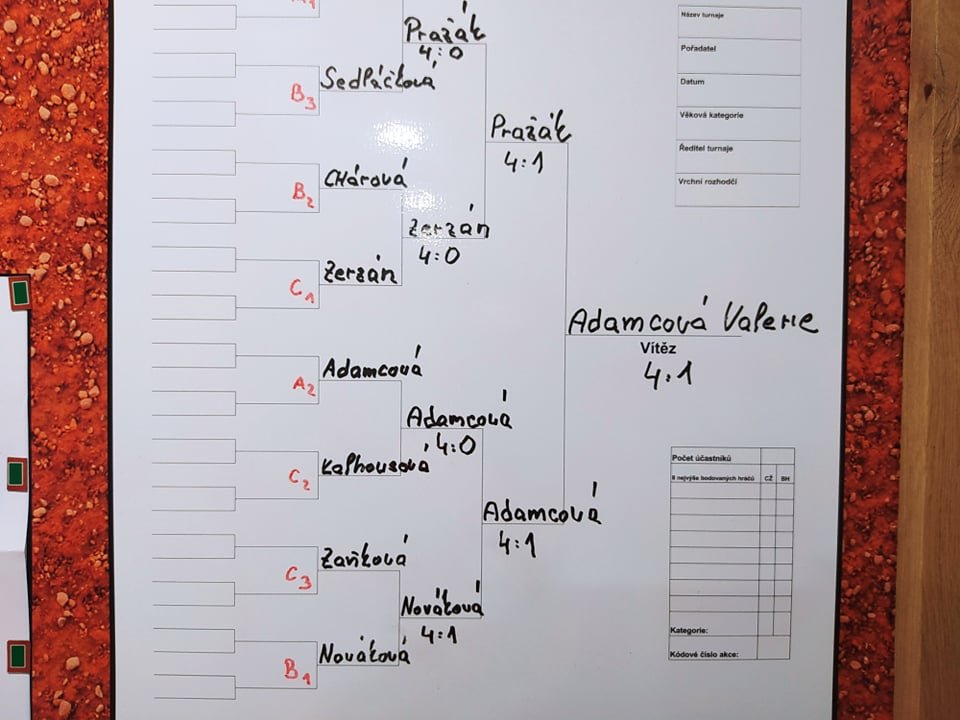 Pražák
4:0
B3 Sedláčková
Pražák
4:1
B2 CHárová
Zerzán
4:0
C1 Zerzán
Adamcová Valerie
Vítěz
4:1
A2 Adamcová
Adamcová
4:0
C2 Kalhousová
Adamcová
4:1
C3 Zaňková
Nováková
4:1
B1 Nováková
Název turnaje
Pořadatel
Datum
Věková kategorie
Ředitel turnaje
Vrchní rozhodčí
Počet účastníků
8 nejvýše bodovaných hráčů CŽ BH
Kategorie:
Kódové číslo akce: